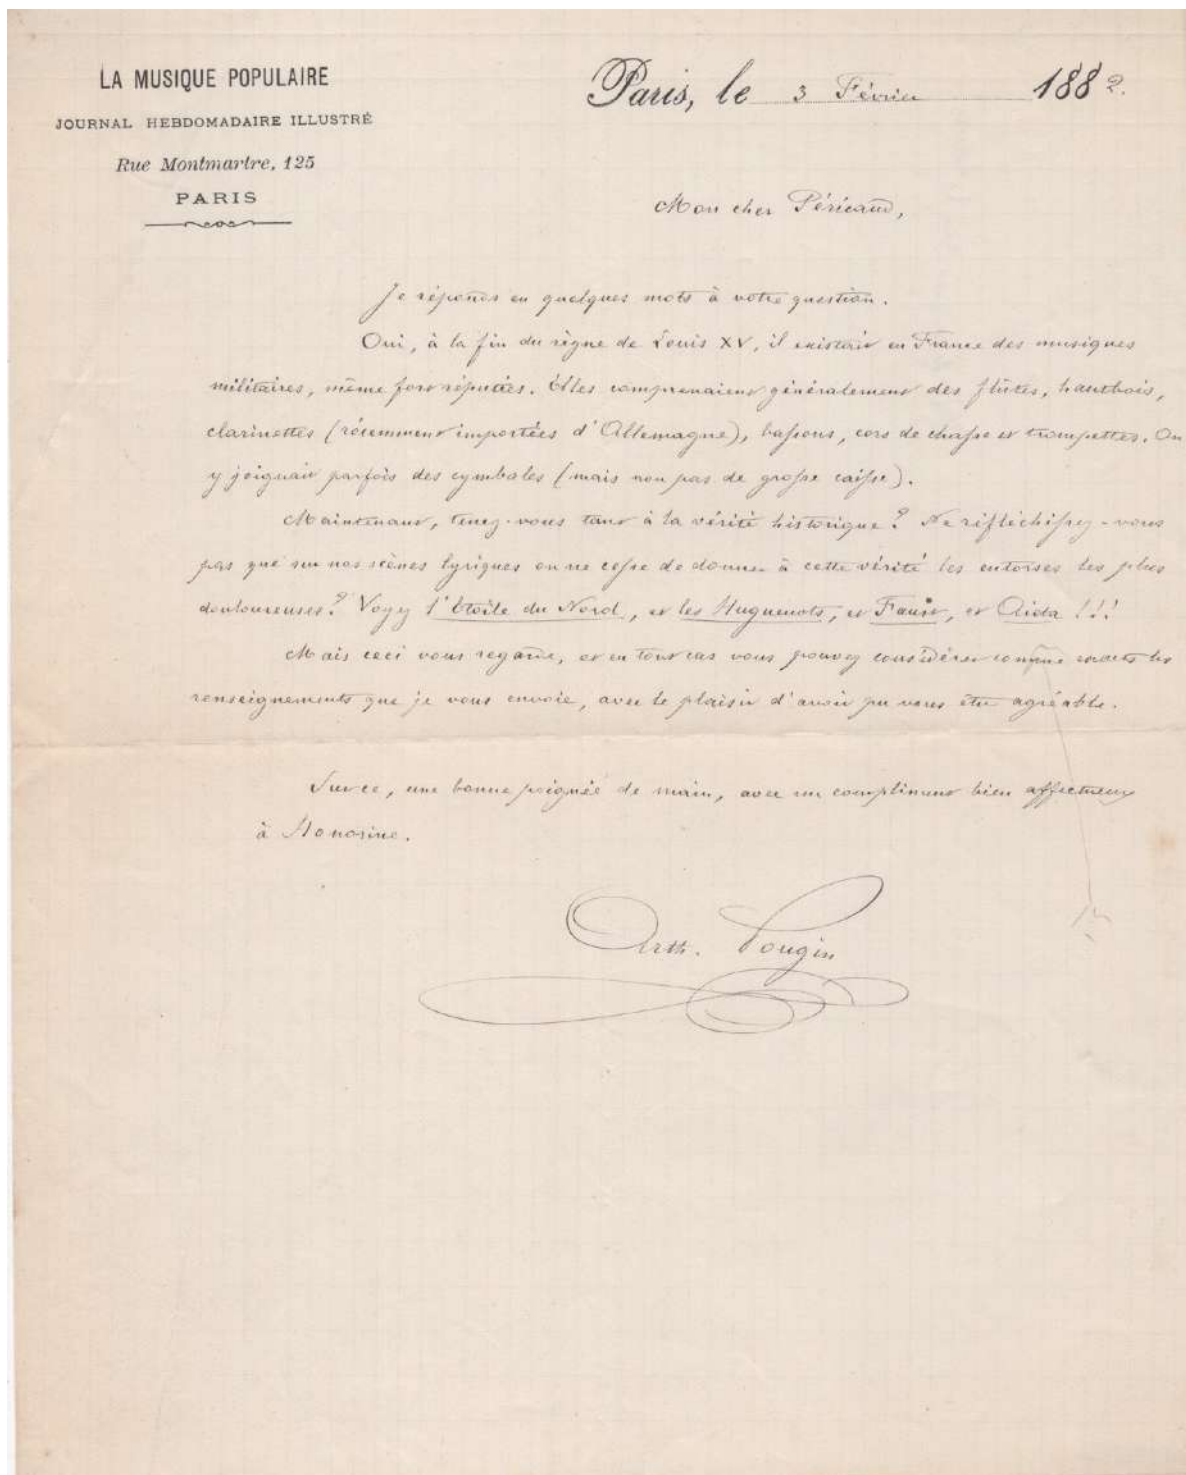 LA MUSIQUE POPULAIRE
JOURNAL HEBDOMADAIRE ILLUSTRÉ
Rue Montmartre, 125
PARIS
Paris, le 3 Février 1882.
Mon cher Péricaud,
Je réponds en quelques mots à votre question.
Oui, à la fin du règne de Louis XV, il existait en France des musiques
militaires, même fort réputées. Elles comprenaient généralement des flûtes, hautbois,
clarinettes (récemment importées d'Allemagne), bassons, cors de chasse et trompettes. On
y joignait parfois des cymbales (mais non pas de grosse caisse).
Maintenant, tenez-vous tant à la vérité historique? Ne réfléchissez-vous
pas que sur nos scènes lyriques on ne cesse de donner à cette vérité les entorses les plus
douloureuses? Voyez l'Etoile du Nord, et les Huguenots, et Faust, et Aïda !!!
Mais ceci vous regarde, et en tout cas vous pouvez considérer comme exacts les
renseignements que je vous envoie, avec le plaisir d'avoir pu vous être agréable.
Sur ce, une bonne poignée de main, avec un compliment bien affectueux
à Honorine.
Arth. Pougin